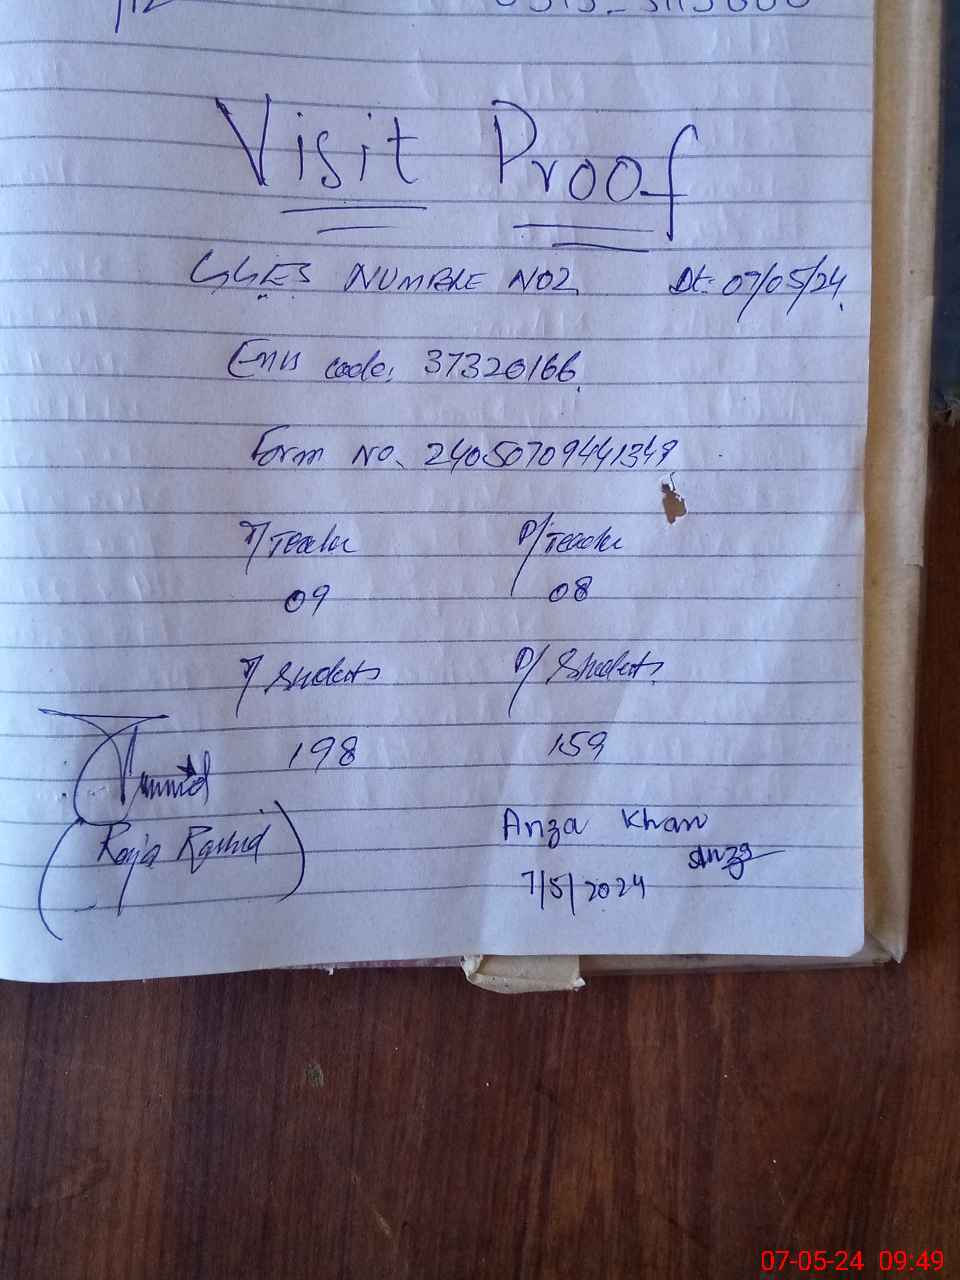 Visit Proof
GGES NUMBLE NO2 Dt: 07/05/24
Emis code: 37320166
Form No. 24050709441349
T/Teacher P/Teacher
09 08
T/Students P/Students
198 159
(Raja Rashid)
Anza Khan
Anza
7/5/2024
07-05-24 09:49